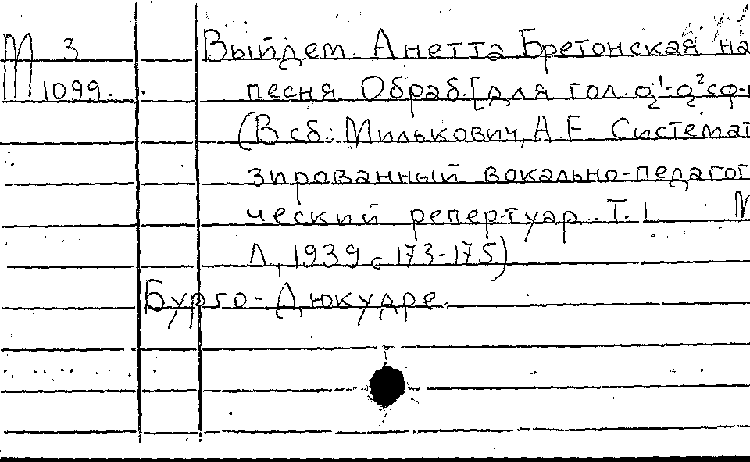 М 3 Выйдем. Анетта Бретонская на
1099. песня Обраб. [для гол. g¹-g² с ф-
(В сб.: Милькович, А.Е. Системат
зированный вокально-педагог
ческий репертуар. Т. I М
Л., 1939 с 173-175)
Бурго-Дюкудре.